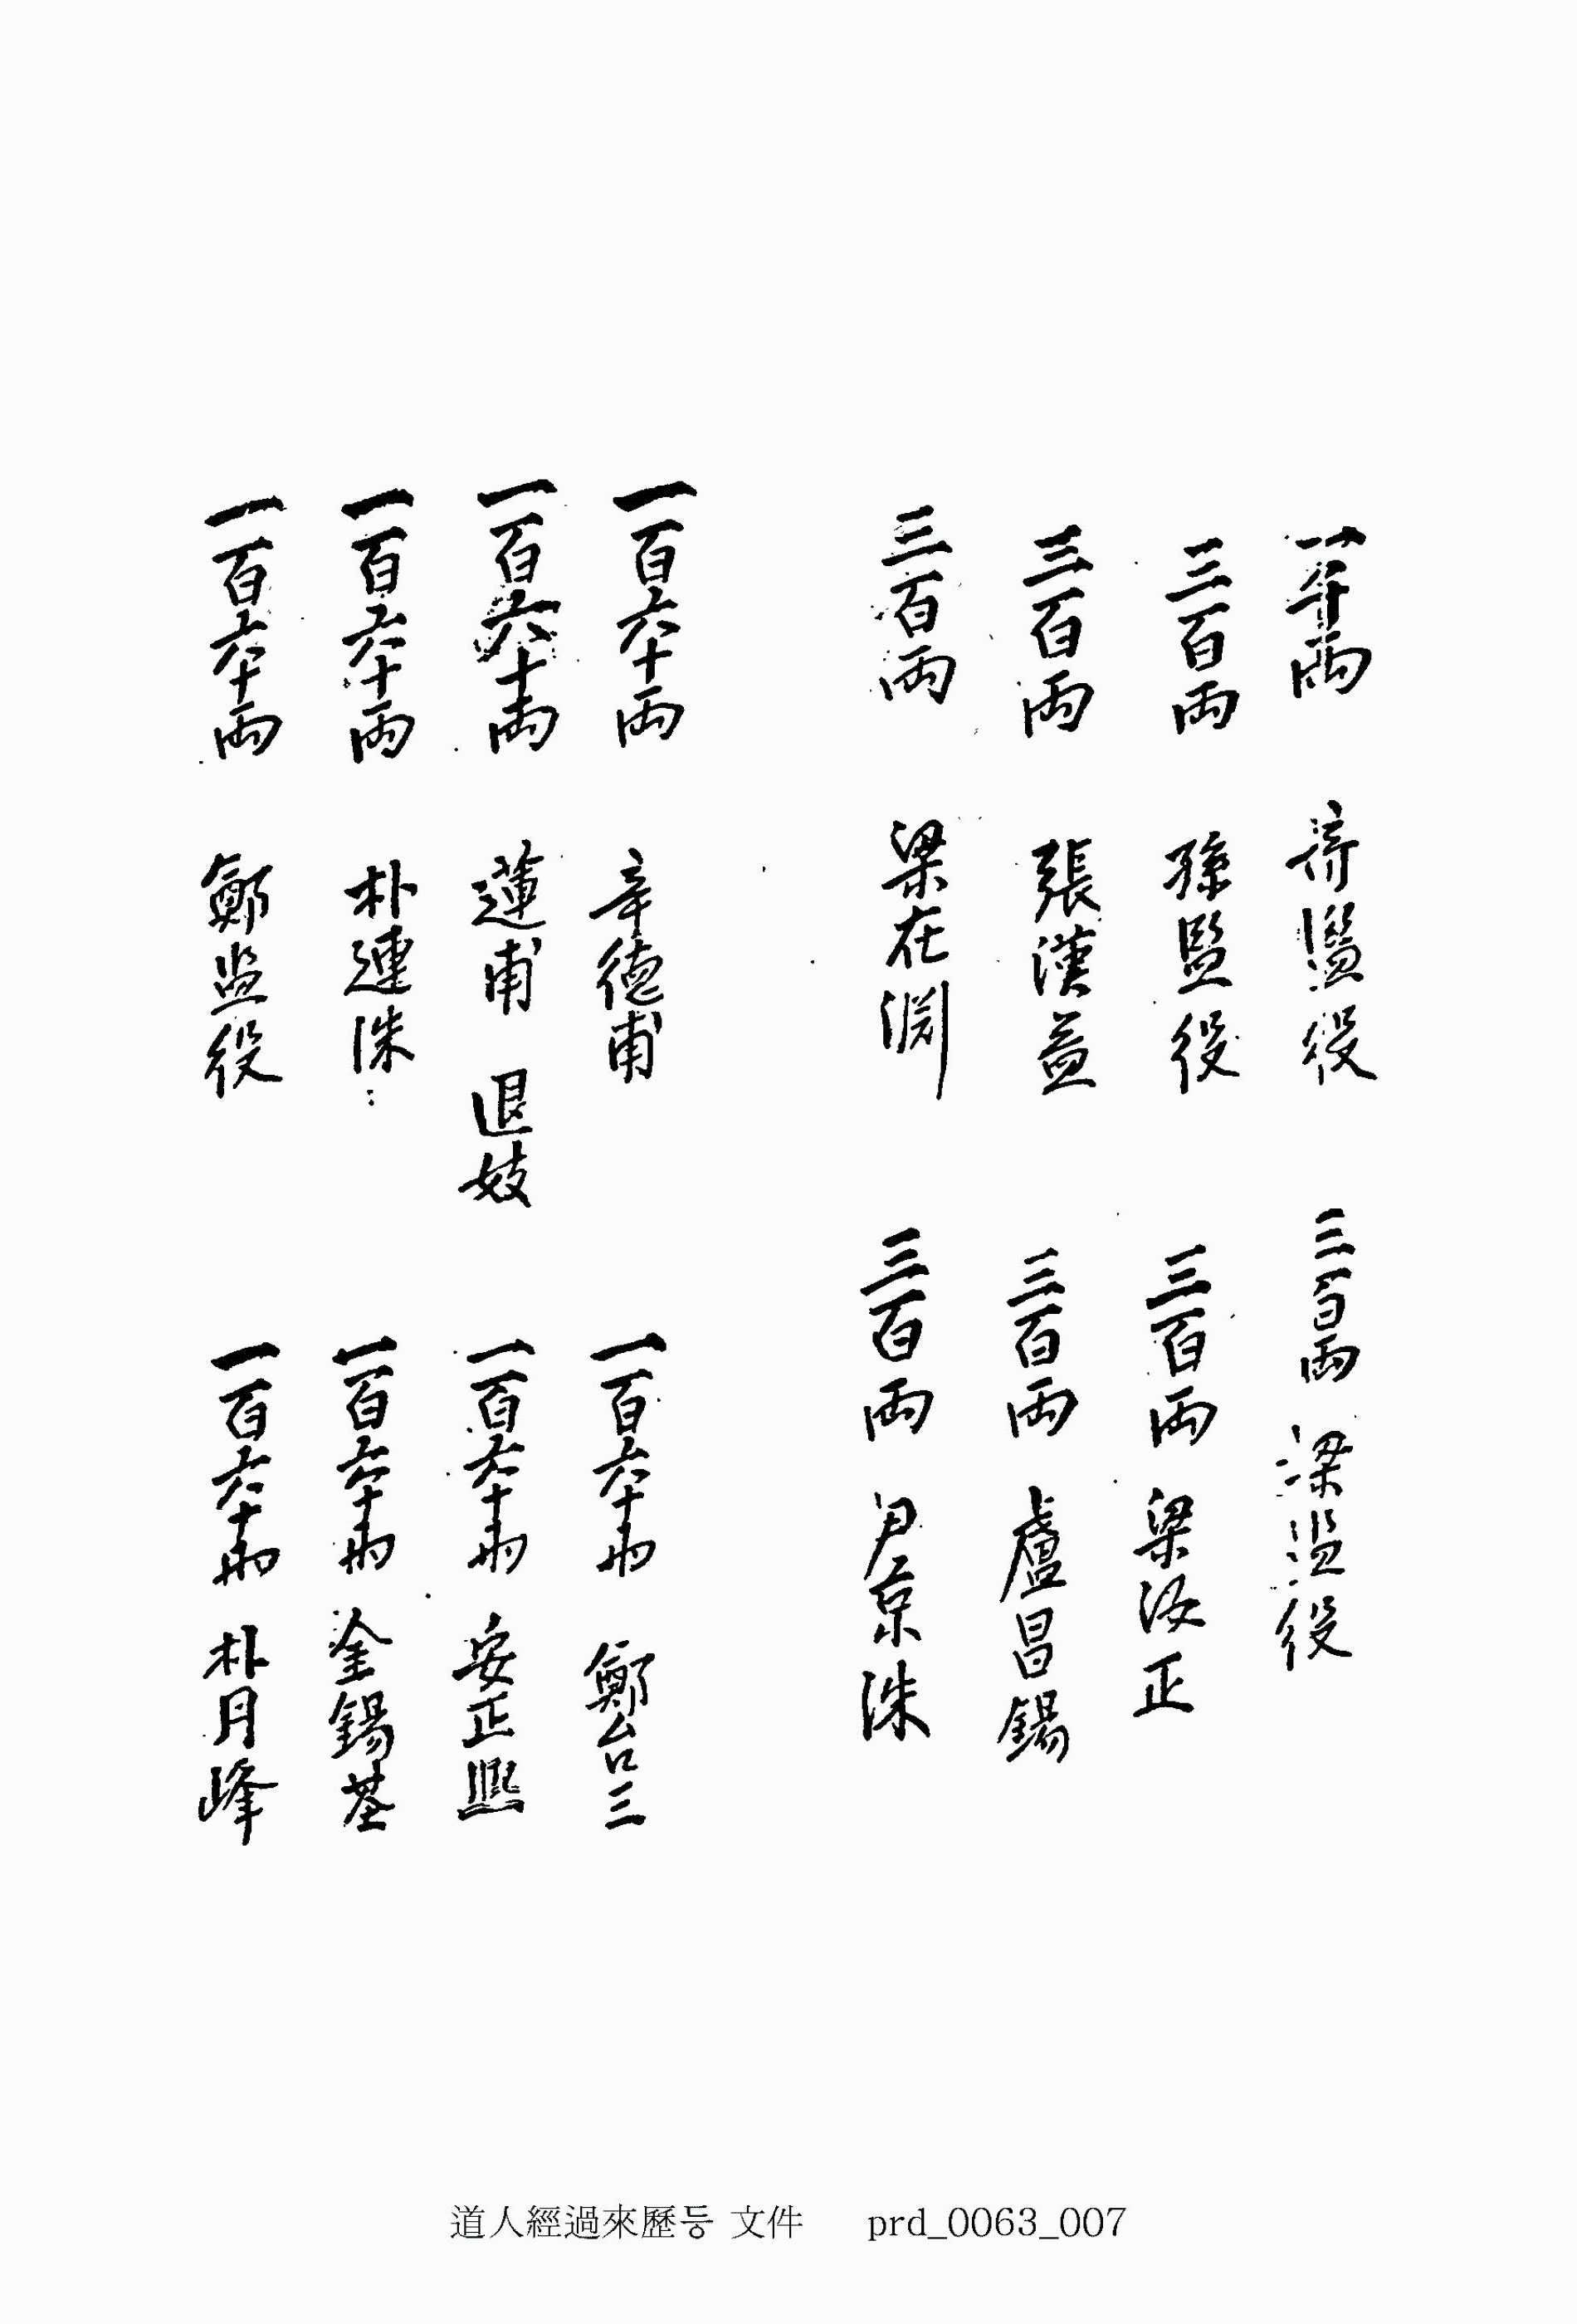 一千兩 齊監役 三百兩 梁監役
三百兩 孫監役 三百兩 梁汝正
三百兩 張漢益 三百兩 盧昌錫
三百兩 梁在淵 三百兩 尹京洙
一百六十兩 辛德甫 一百六十兩 鄭台三
一百六十兩 蓮甫 退妓 一百六十兩 安正熙
一百六十兩 朴連洙 一百六十兩 金錫基
一百六十兩 鄭监役 一百六十兩 朴月峰
道人經過來歷등 文件 prd_0063_007